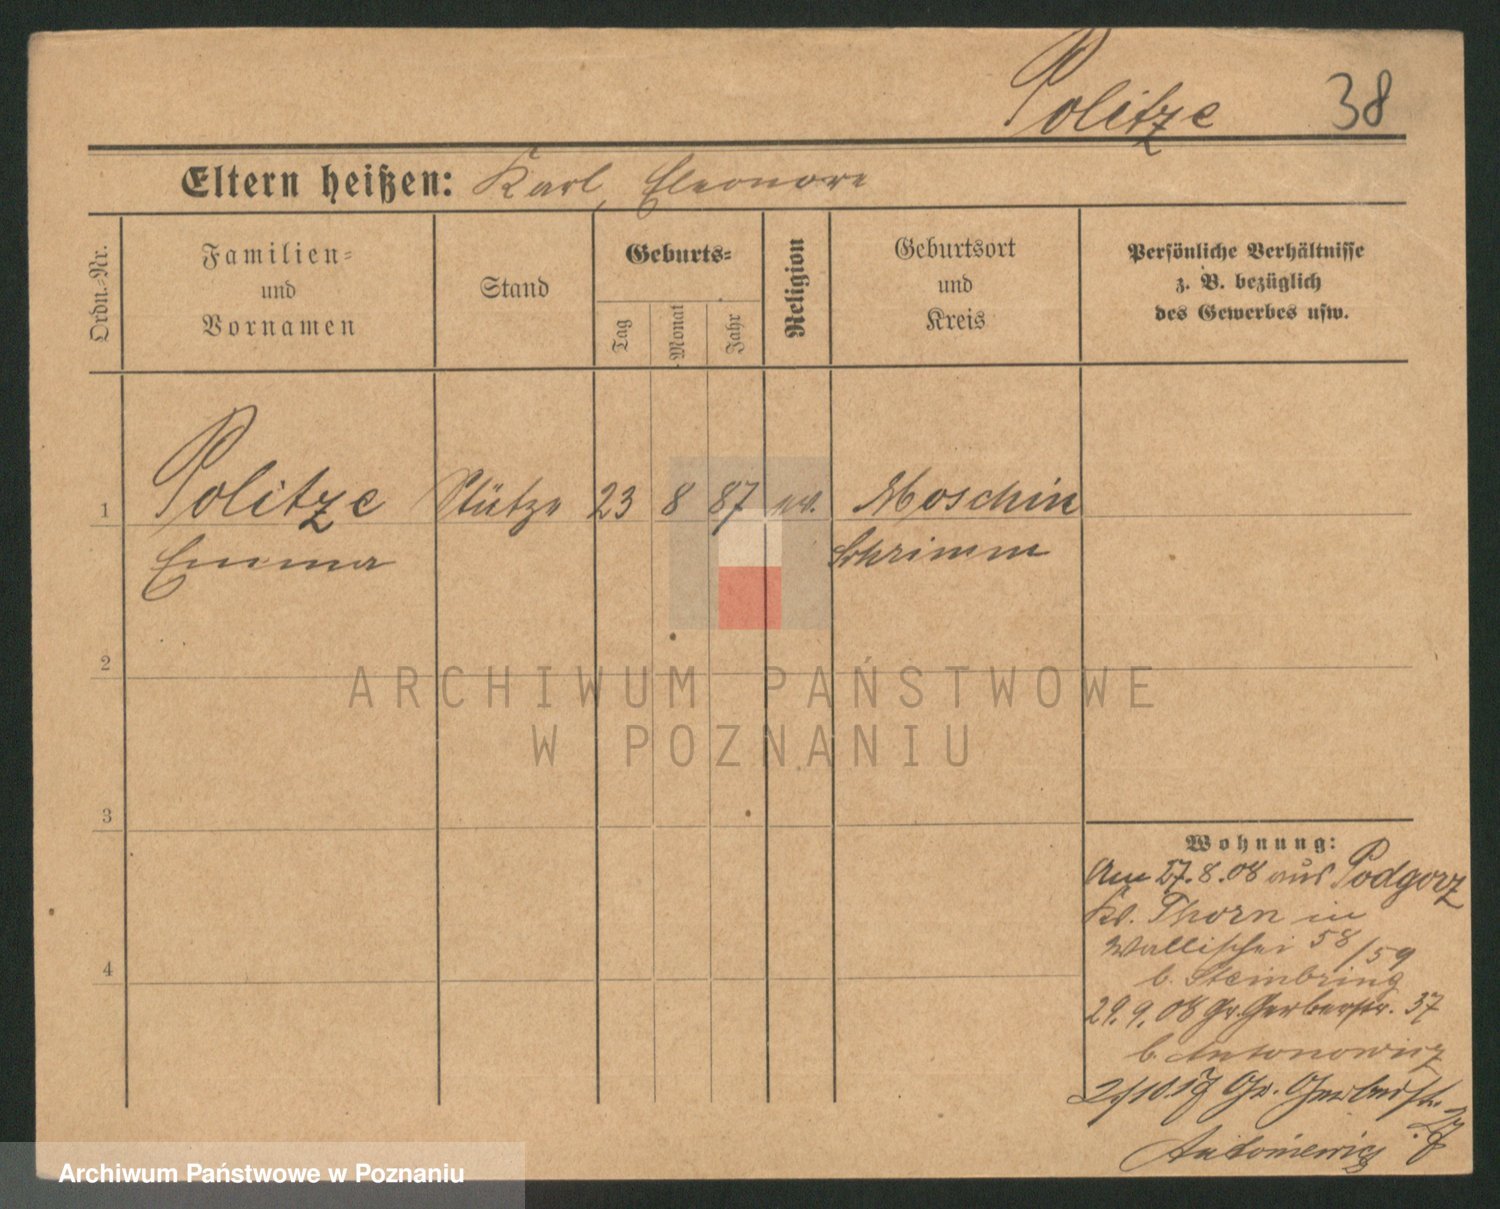 Politze 38
Eltern heißen: Karl, Eleonore
Ordn.-Nr.
Familien-
und
Vornamen
Stand
Geburts-
Tag
Monat
Jahr
Religion
Geburtsort
und
Kreis
Persönliche Verhältnisse
z. B. bezüglich
des Gewerbes usw.
1 Politze Stütze 23 8 87 ev. Moschin
Emma Schrimm
2
ARCHIWUM PAŃSTWOWE
W POZNANIU
3
4
Wohnung:
Am 27.8.08 aus Podgorz
Kr. Thorn in
Wallischei 58/59
b. Steinbring
29.9.08 Gr. Gerberstr. 37
b. Antonowicz
Gr. Gerberstr.
Archiwum Państwowe w Poznaniu